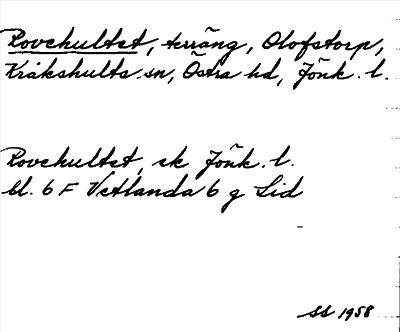 Rovehultet, terräng, Olofstorp,
Kråkshults sn, Östra hd, Jönk. l.
Rovehultet, ek Jönk. l.
bl. 6 F Vetlanda 6 g Lid
SS 1958